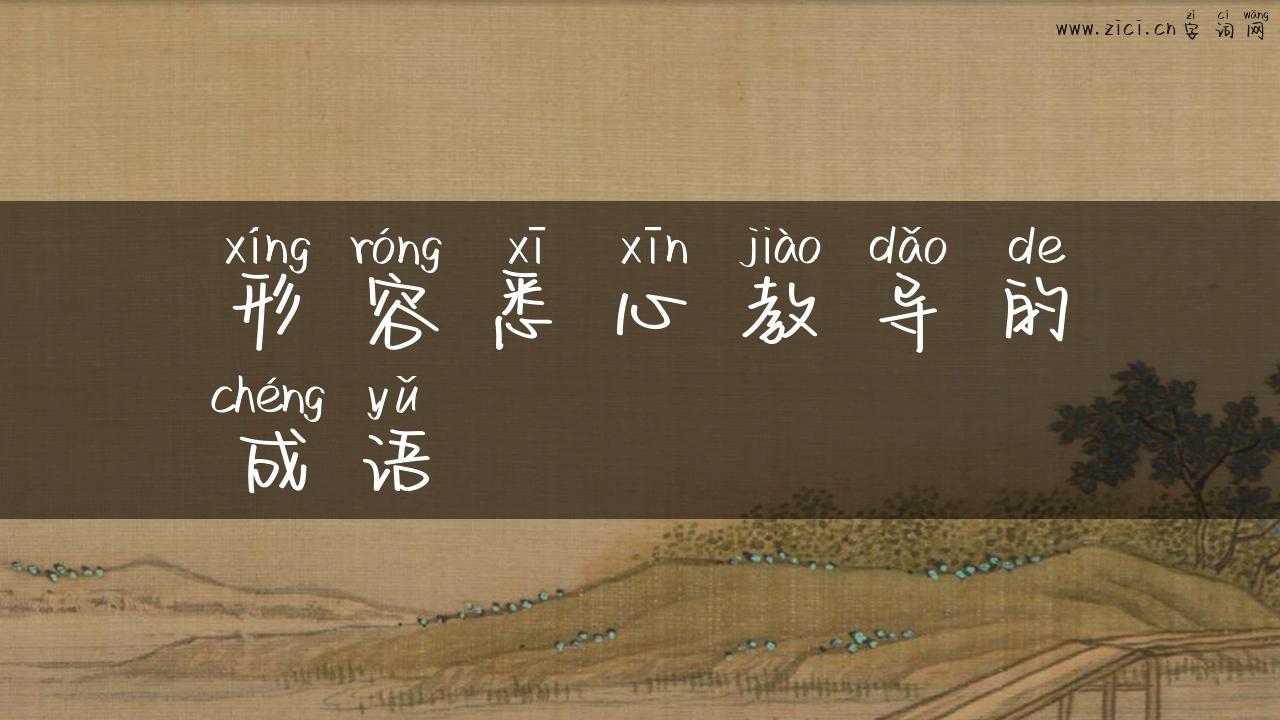 zì cí wǎng
www.zici.cn 字词网
xíng róng xī xīn jiào dǎo de
形容悉心教导的
chéng yǔ
成语